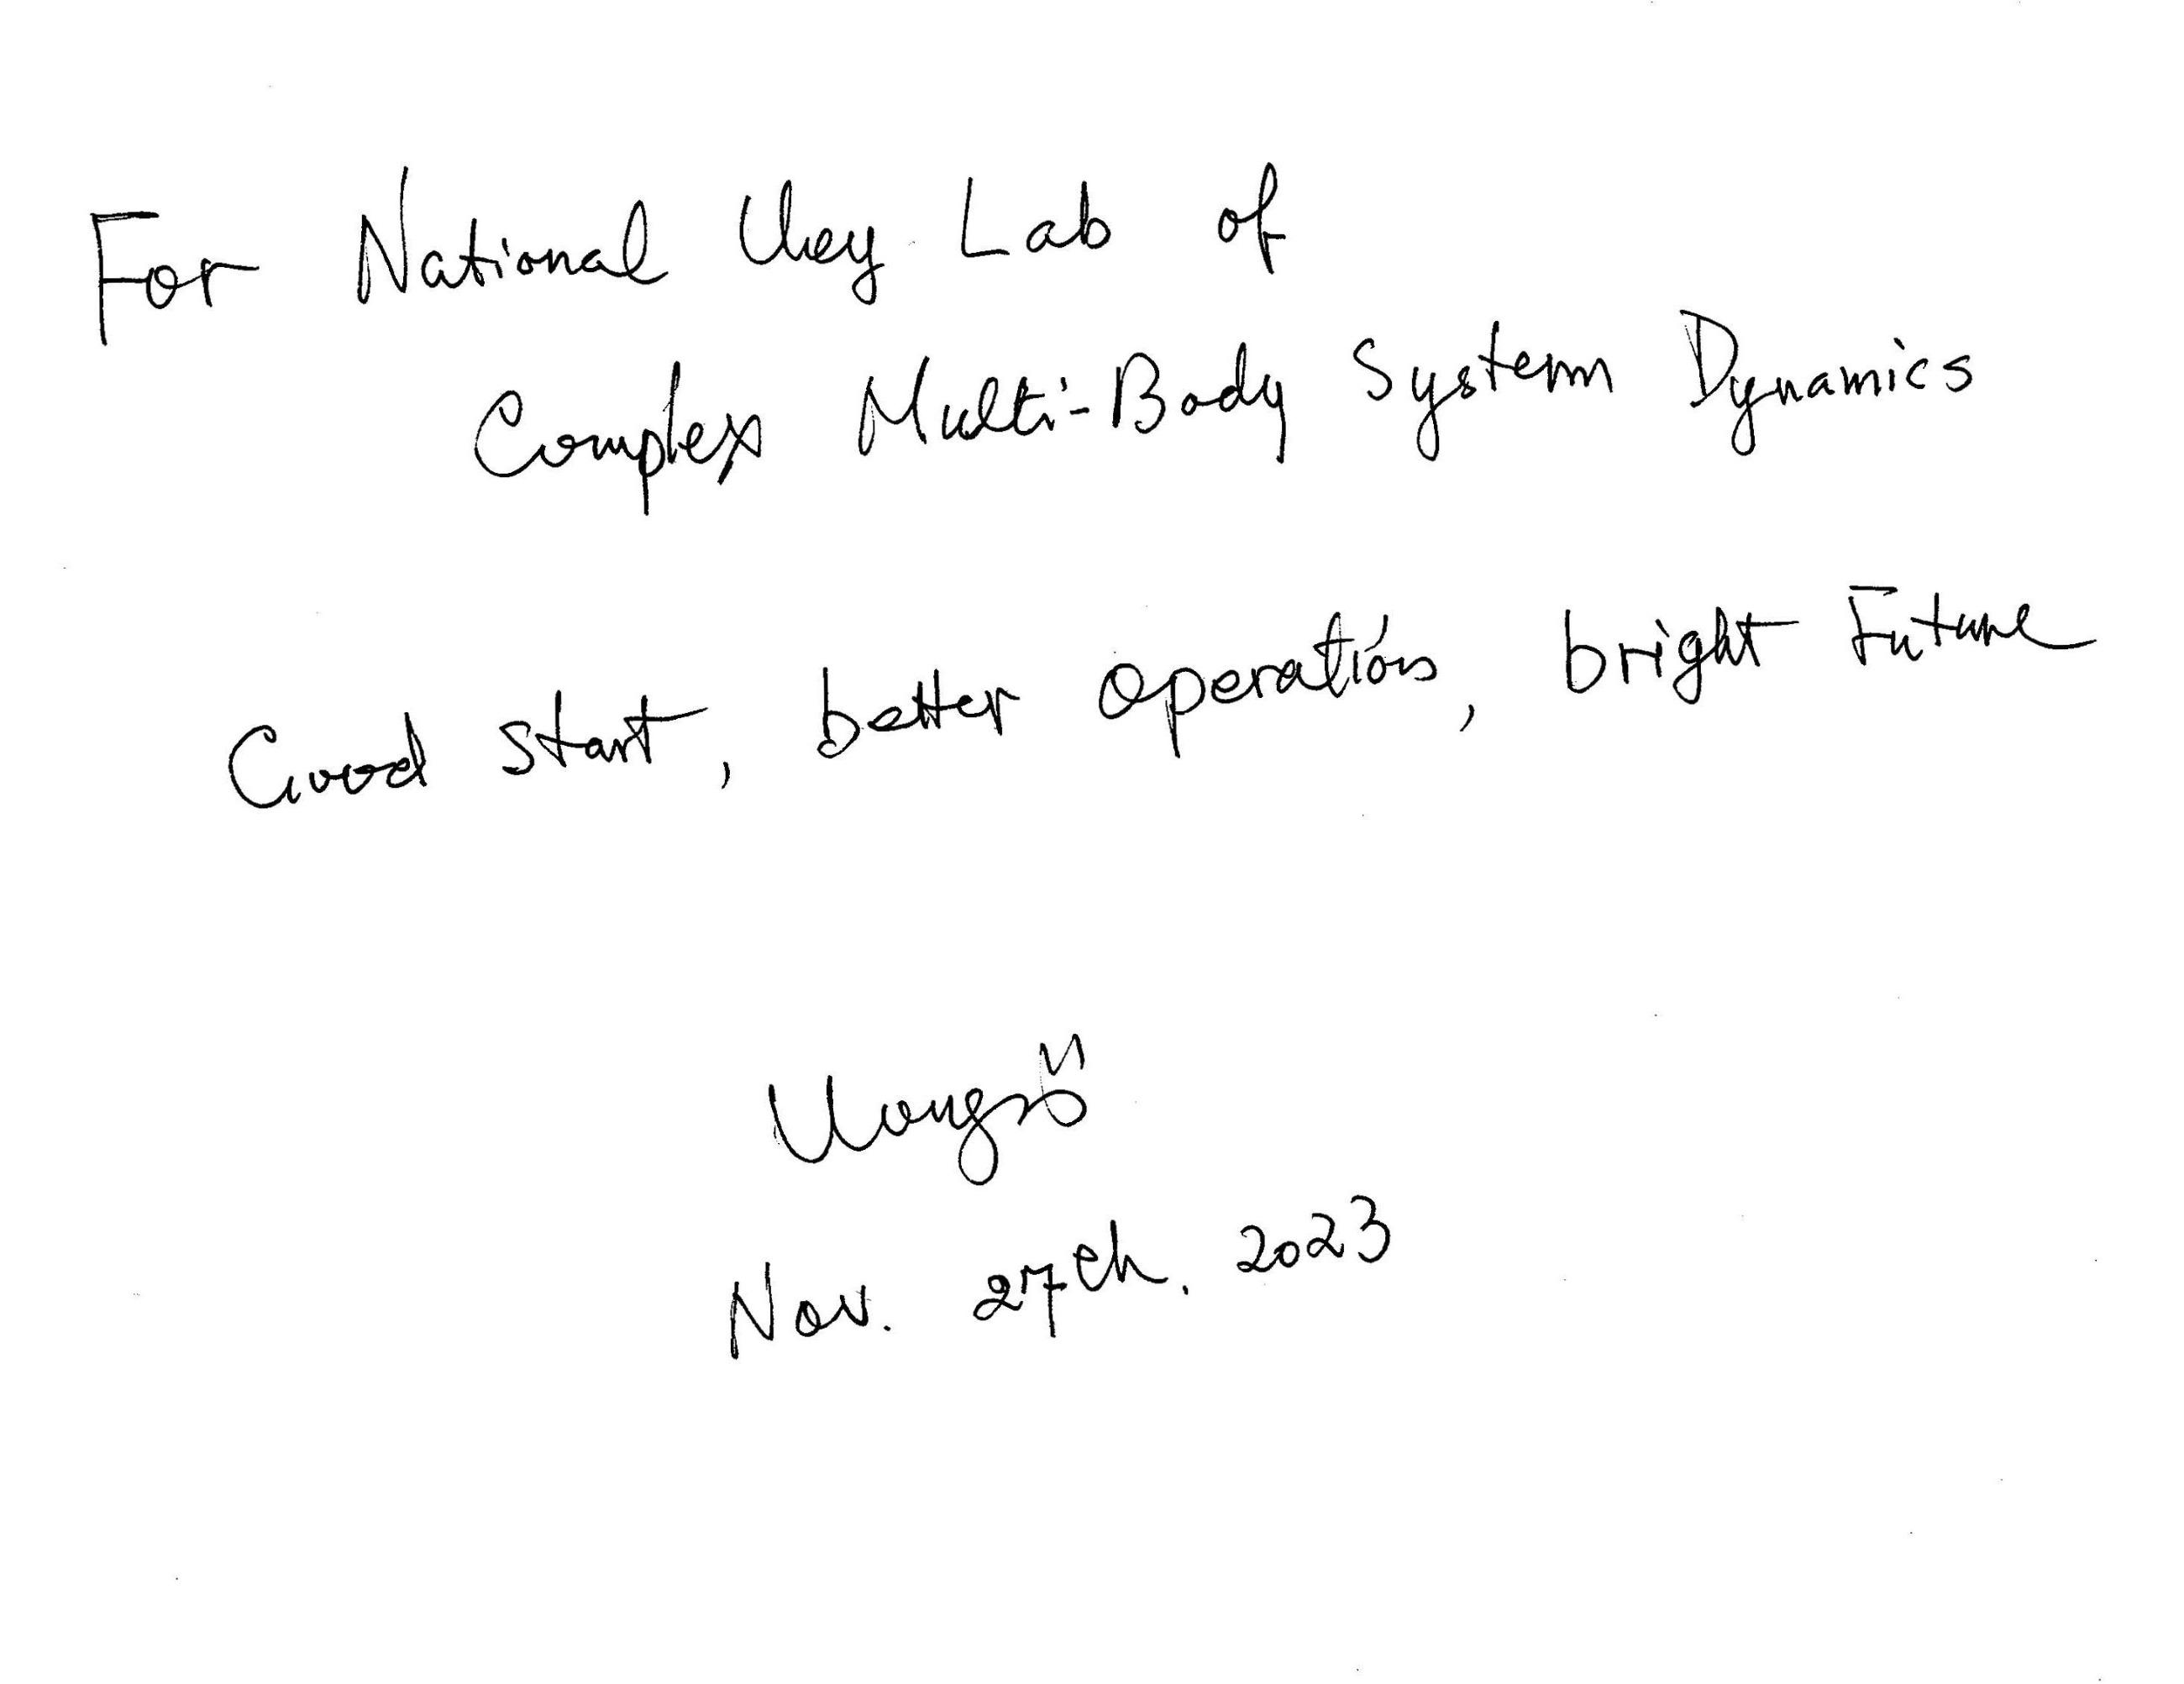 For National Key Lab of
Complex Multi-Body System Dynamics
Good start, better operation, bright Future
Nov. 27th. 2023